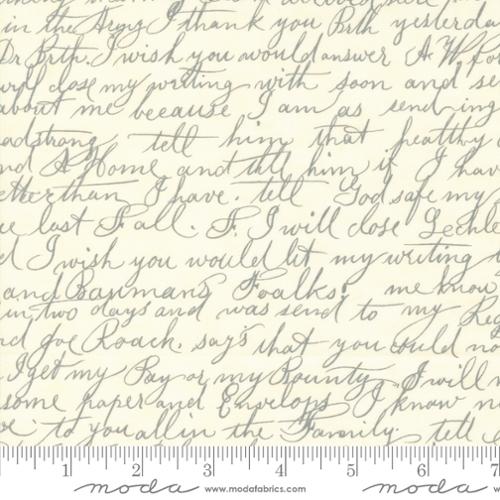 in the Army I thank you Brth yesterda
Dr Brth. I wish you would answer A. W. Fo
will close my writing with soon and se
about me because I am as sending
adstrong tell him that healthy
nd A Home and till him if I hav
etter than I have. tell God safe my
ce last Fall. F. I will close Lechle
d I wish you would let my writing
and Baumans Foalks, me know
in two days and was send to my Reg
nd Joe Roach. says that you could no
I get my Pay or my Bounty. I will
some paper and Envelops I know n
to you all in the Family. tell
1 2 3 4 5 6 7
moda www.modafabrics.com moda